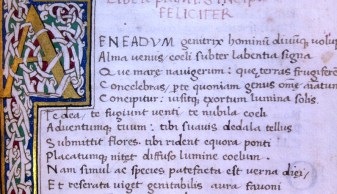 FELICITER
AENEADUM genitrix hominũ divũq; volup
Alma venus: cœli subter labentia signa
Que mare navigerum: que terras frugifere
Concelebras, per te quoniam genus omne aĩatum
Concipitur: visitq; exortum lumina solis.
Te dea, te fugiunt venti: te nubila cœli
Adventumq; tuum: tibi suavis dedala tellus
Submittit flores. tibi rident equora ponti
Placatumq; nitet diffuso lumine coelum.
Nam simul ac species patefacta est verna diei
Et reserata viget genitabilis aura favoni